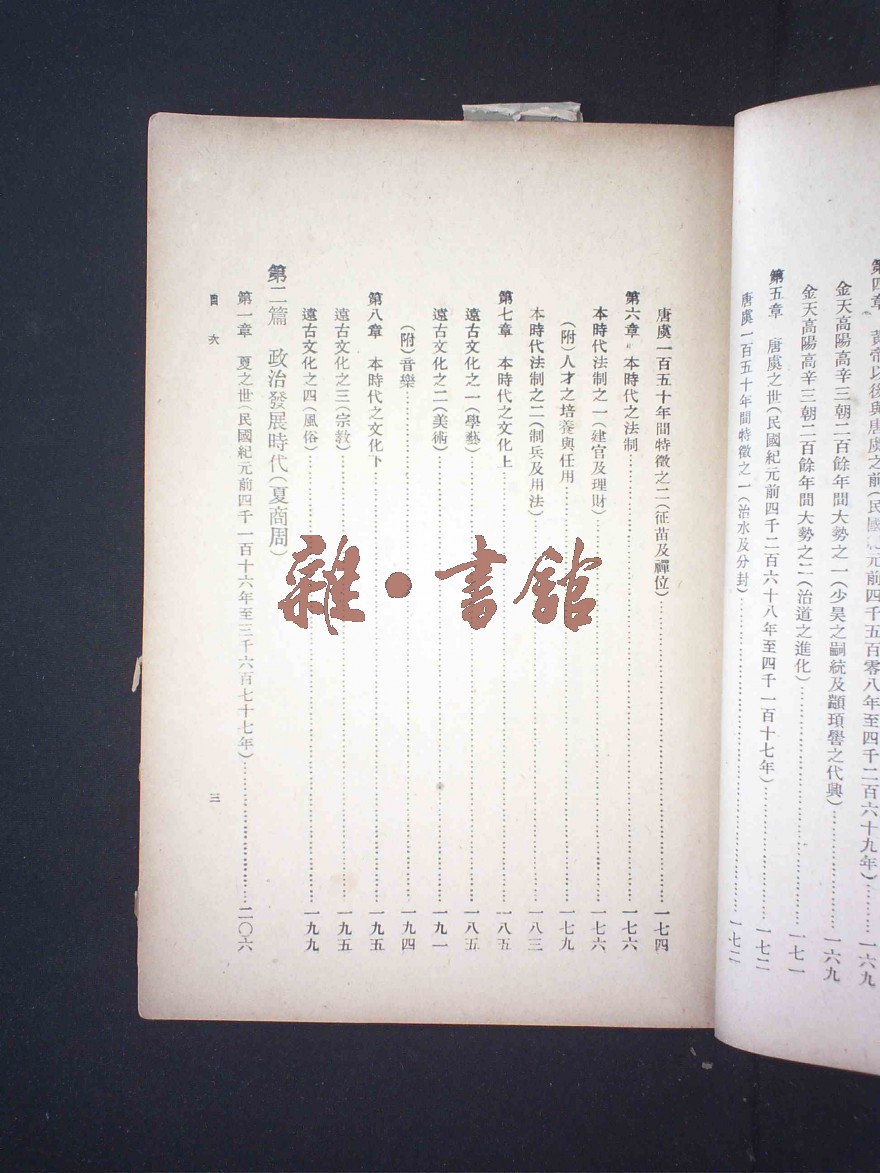 第四章　黃帝以後與唐虞之前(民國紀元前四千五百零八年至四千二百六十九年)…………一六九
金天高陽高辛三朝二百餘年間大勢之一(少昊之嗣統及顓頊嚳之代興)…………一六九
金天高陽高辛三朝二百餘年間大勢之二(治道之進化)…………一七一
第五章　唐虞之世(民國紀元前四千二百六十八年至四千一百十七年)…………一七二
唐虞一百五十年間特徵之一(治水及分封)…………一七二
唐虞一百五十年間特徵之二(征苗及禪位)…………一七四
第六章　本時代之法制…………一七六
本時代法制之一(建官及理財)…………一七六
(附)人才之培養與任用…………一七九
本時代法制之二(制兵及用法)…………一八三
第七章　本時代之文化上…………一八五
遠古文化之一(學藝)…………一八五
遠古文化之二(美術)…………一九一
(附)音樂…………一九四
第八章　本時代之文化下…………一九五
遠古文化之三(宗教)…………一九五
遠古文化之四(風俗)…………一九九
第二篇　政治發展時代(夏商周)
第一章　夏之世(民國紀元前四千一百十六年至三千六百七十七年)…………二〇六
目次
三
雜·書館